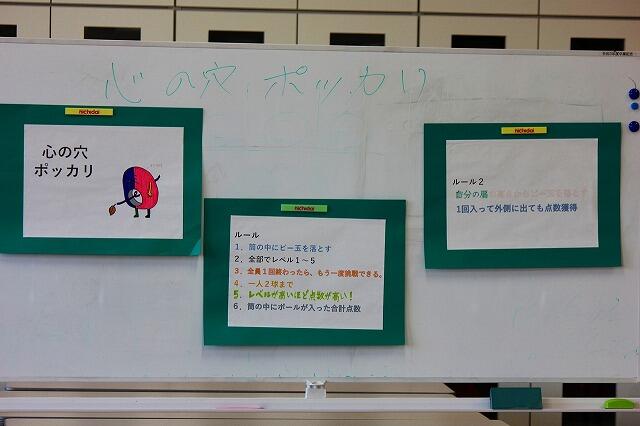 心の穴、ポッカリ
Nichidai
心の穴
ポッカリ
Nichidai
ルール
1．筒の中にビー玉を落とす
2．全部でレベル１～５
3．全員１回終わったら、もう一度挑戦できる。
4．一人２球まで
5．レベルが高いほど点数が高い！
6．筒の中にボールが入った合計点数
Nichidai
ルール２
自分の肩の高さからビー玉を落とす
1回入って外側に出ても点数獲得